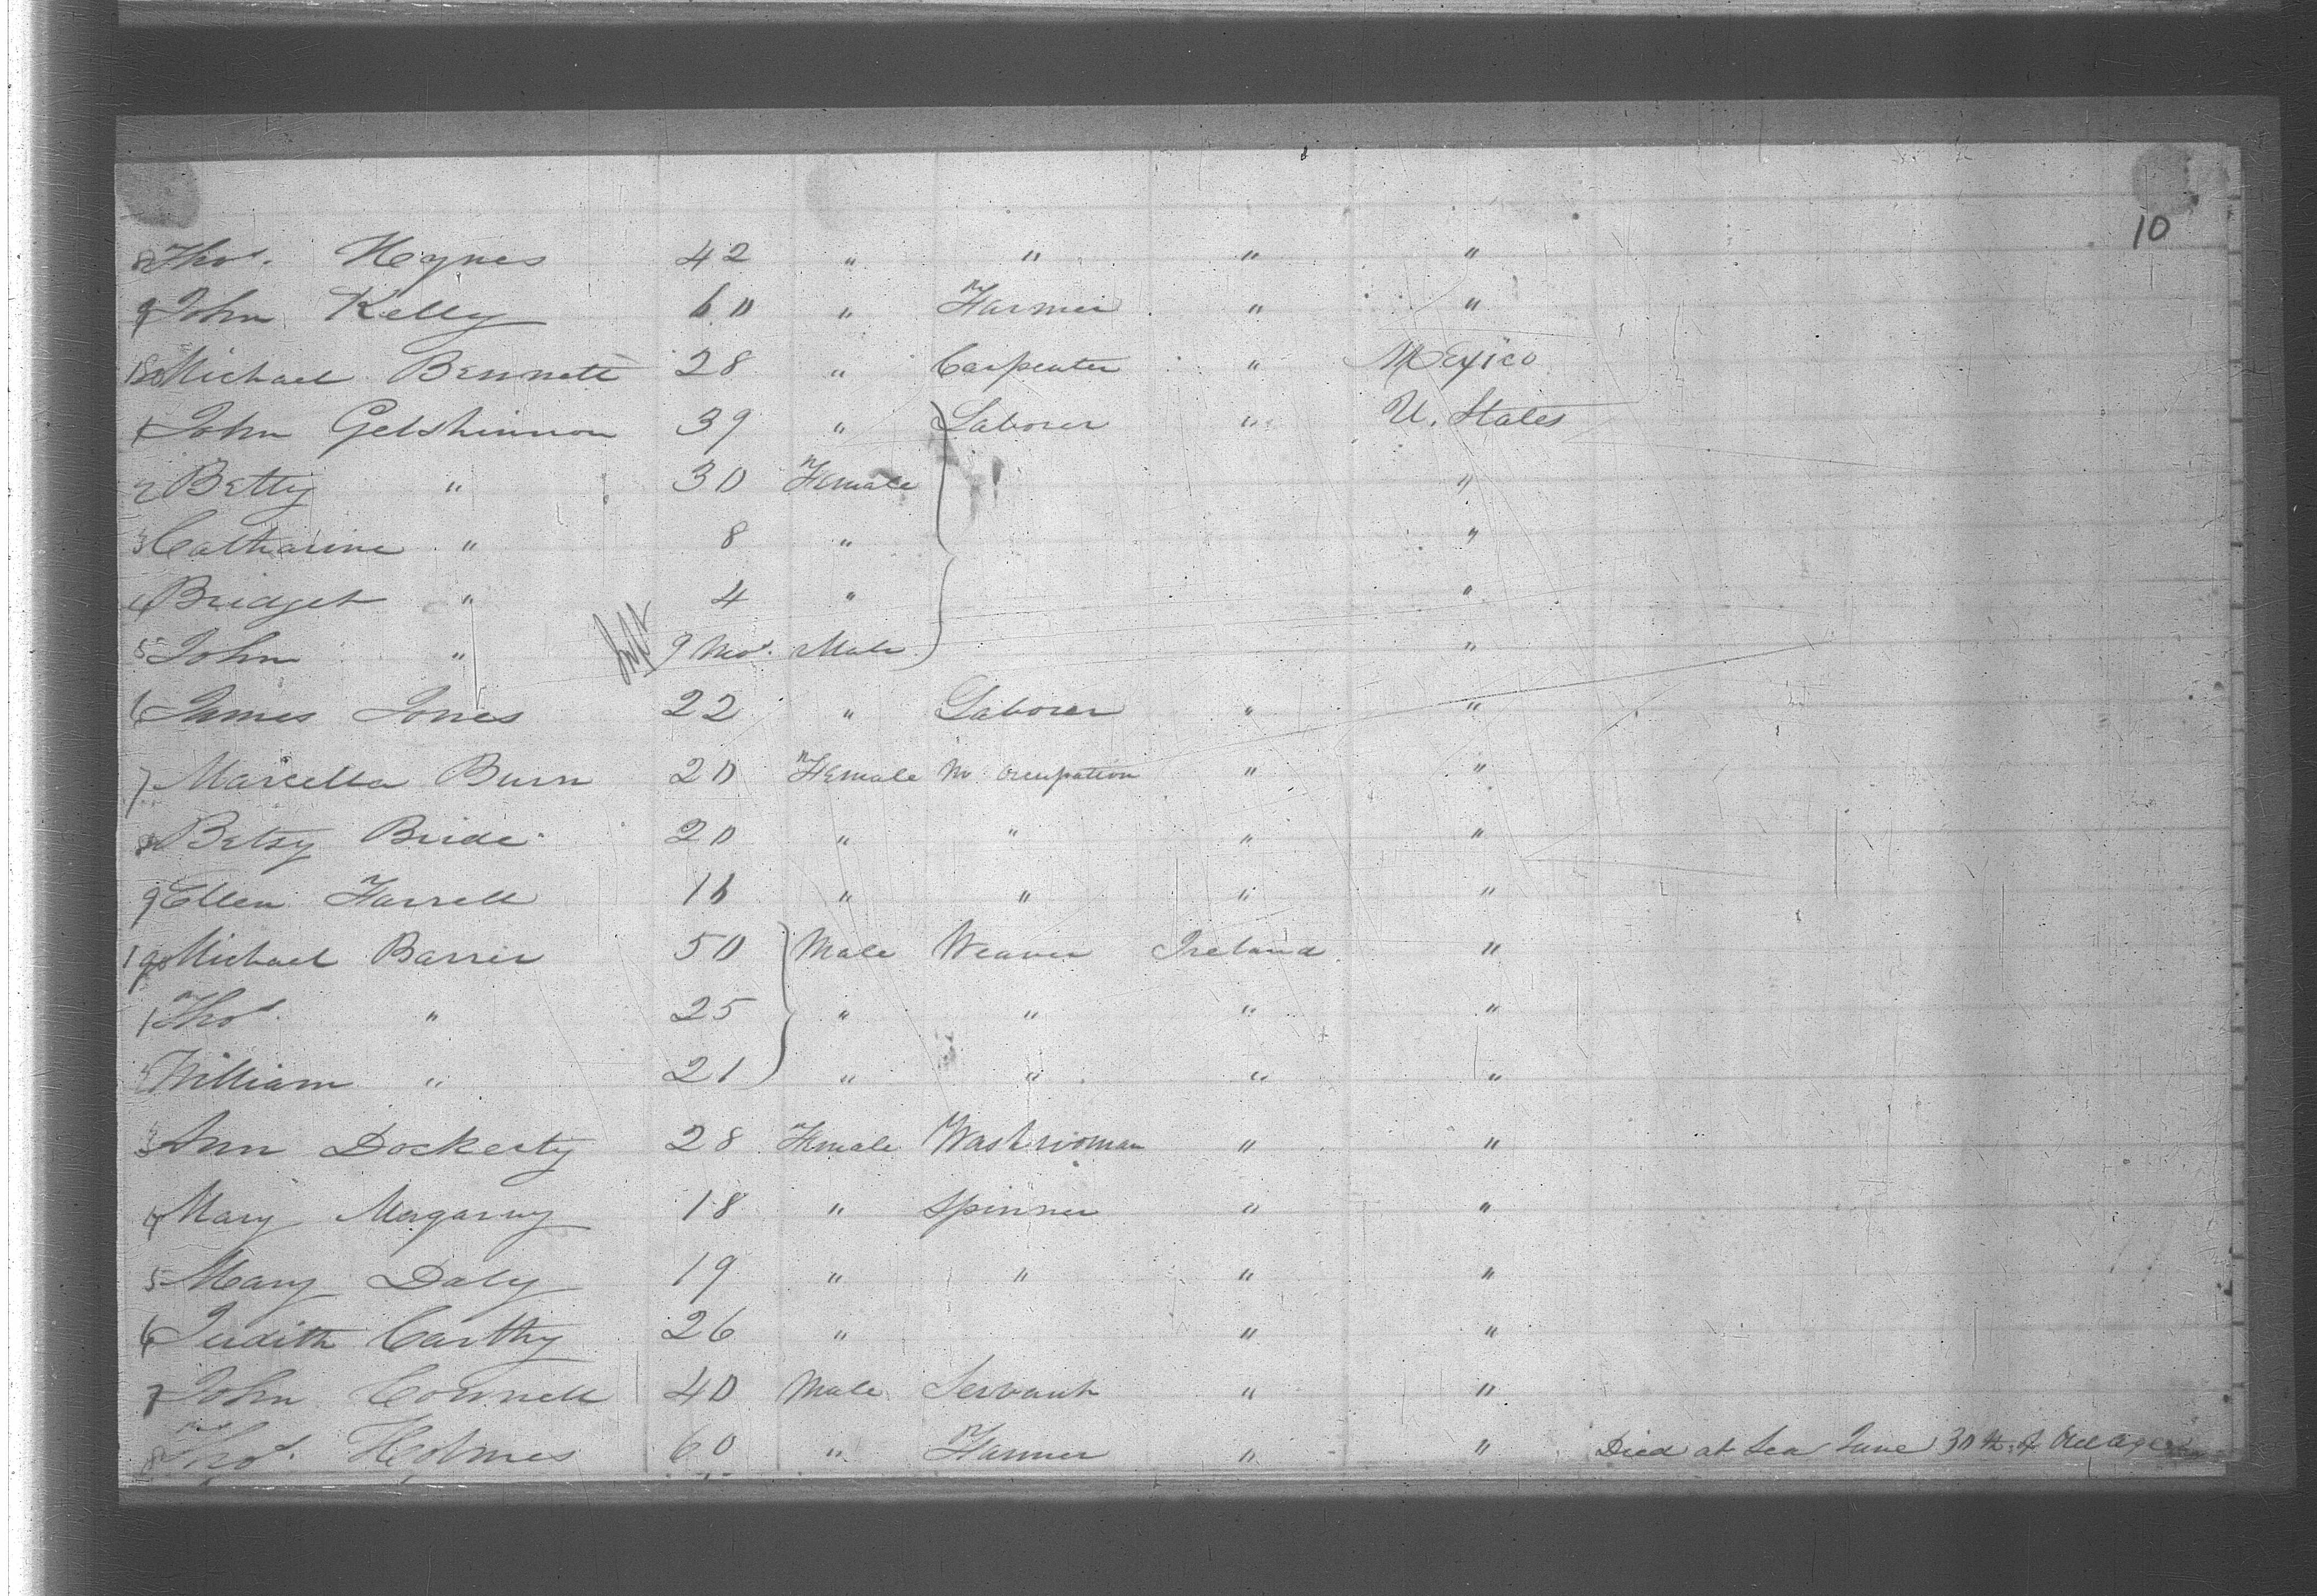 10
8 Thos. Heynes 42 " " " "
9 John Kelly 60 " Farmer " "
180 Michael Bennett 28 " Carpenter " Mexico
1 John Gelshinnon 39 " Laborer " U. States
2 Betty " 30 Female "
3 Catharine " 8 " "
4 Bridget " 4 " "
5 John " 9 Mos. Male "
6 James Jones 22 " Laborer " "
7 Marcella Burn 20 Female No occupation " "
8 Betsy Bride 20 " " " "
9 Ellen Farrell 16 " " " "
190 Michael Barrer 50 Male Weaver Ireland "
1 Thos. " 25 " " " "
2 William " 21 " " " "
3 Ann Dockerty 28 Female Washwoman " "
4 Mary Magarny 18 " Spinner " "
5 Mary Daly 19 " " " "
6 Judith Carthy 26 " " "
7 John Connell 40 Male Servant " "
8 Thos. Holmes 60 " Farmer " " Died at Sea June 30th of Old age